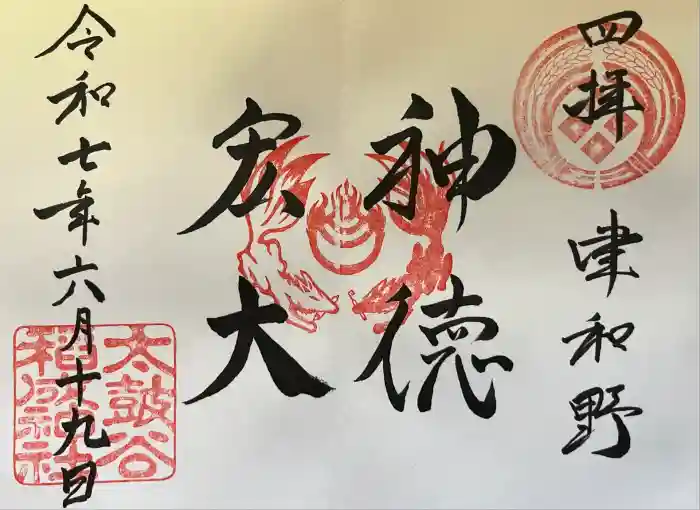 四拝
津和野
神徳
宏大
令和七年六月十九日
太鼓谷
稲成神社